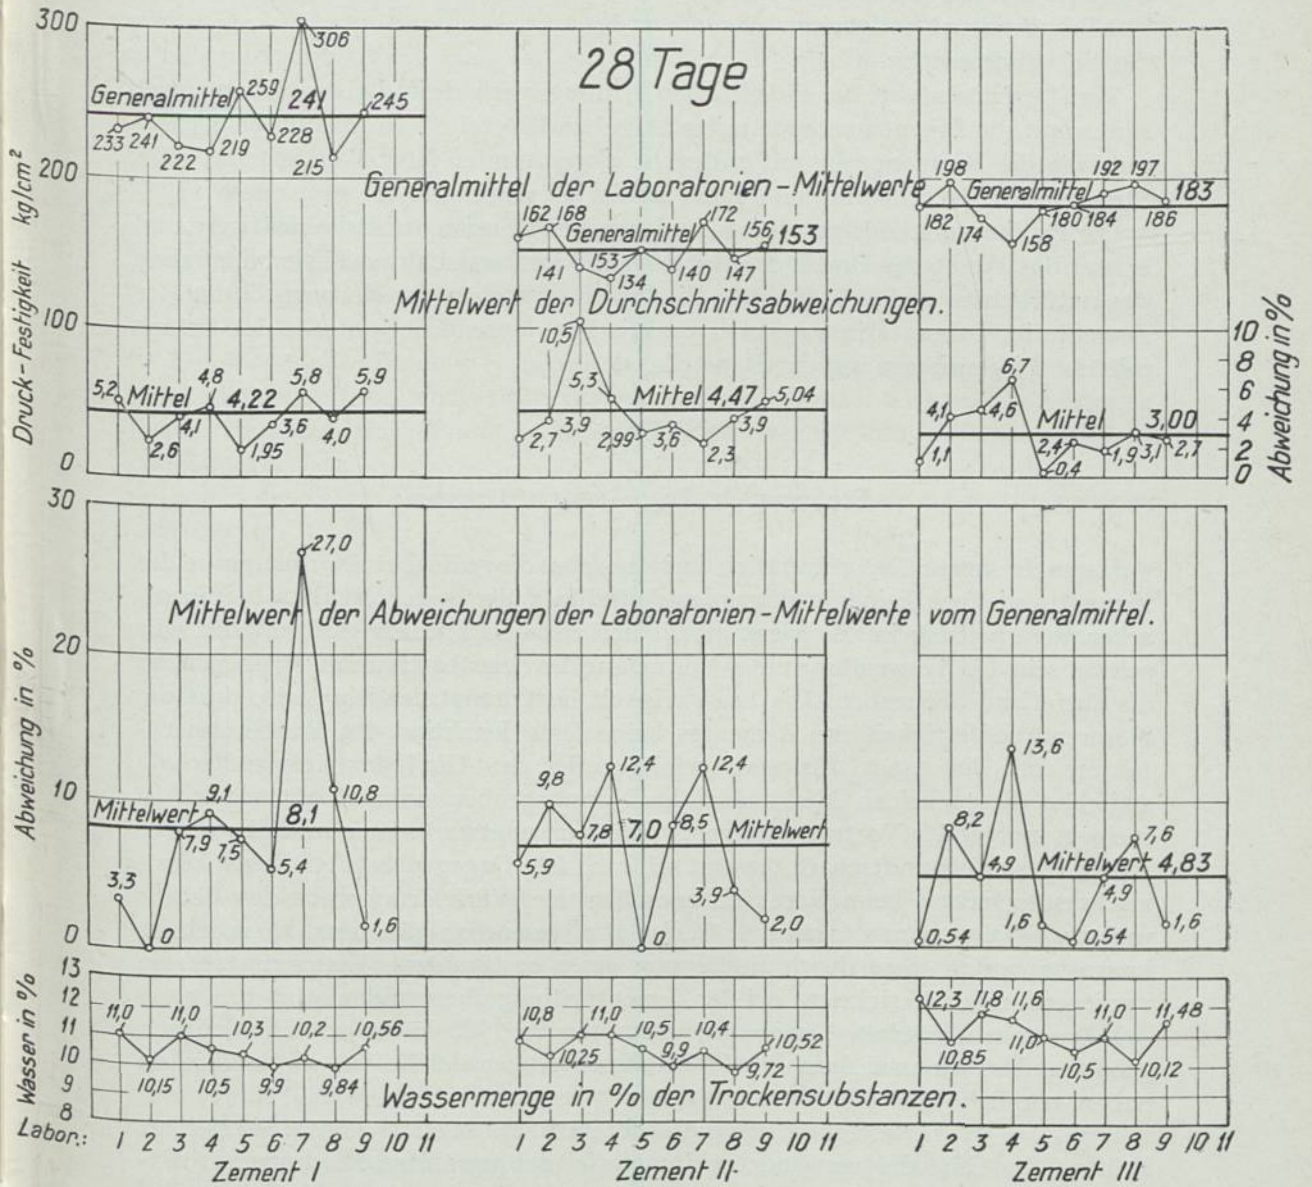 28 Tage
Druck-Festigkeit kg/cm²
300
200
100
0
Generalmittel 241
233 241 222 219 259 228 306 215 245
Generalmittel der Laboratorien-Mittelwerte
162 168 141 134 153 140 172 147 156
Generalmittel 153
182 198 174 158 180 184 192 197 186
Generalmittel 183
Mittelwert der Durchschnittsabweichungen.
Abweichung in %
10
8
6
4
2
0
5,2 2,6 4,1 4,8 1,95 3,6 5,8 4,0 5,9
Mittel 4,22
2,7 3,9 10,5 5,3 2,99 3,6 2,3 3,9 5,04
Mittel 4,47
1,1 4,1 4,6 6,7 0,4 2,4 1,9 3,1 2,7
Mittel 3,00
Abweichung in %
30
20
10
0
Mittelwert der Abweichungen der Laboratorien-Mittelwerte vom Generalmittel.
3,3 0 7,9 9,1 7,5 5,4 27,0 10,8 1,6
Mittelwert 8,1
5,9 9,8 7,8 12,4 0 8,5 12,4 3,9 2,0
7,0 Mittelwert
0,54 8,2 4,9 13,6 1,6 0,54 4,9 7,6 1,6
Mittelwert 4,83
Wasser in %
13
12
11
10
9
8
11,0 10,15 11,0 10,5 10,3 9,9 10,2 9,84 10,56
10,8 10,25 11,0 10,5 9,9 10,4 9,72 10,52
12,3 10,85 11,8 11,6 11,0 10,5 11,0 10,12 11,48
Wassermenge in % der Trockensubstanzen.
Labor.: 1 2 3 4 5 6 7 8 9 10 11
1 2 3 4 5 6 7 8 9 10 11
1 2 3 4 5 6 7 8 9 10 11
Zement I
Zement II
Zement III